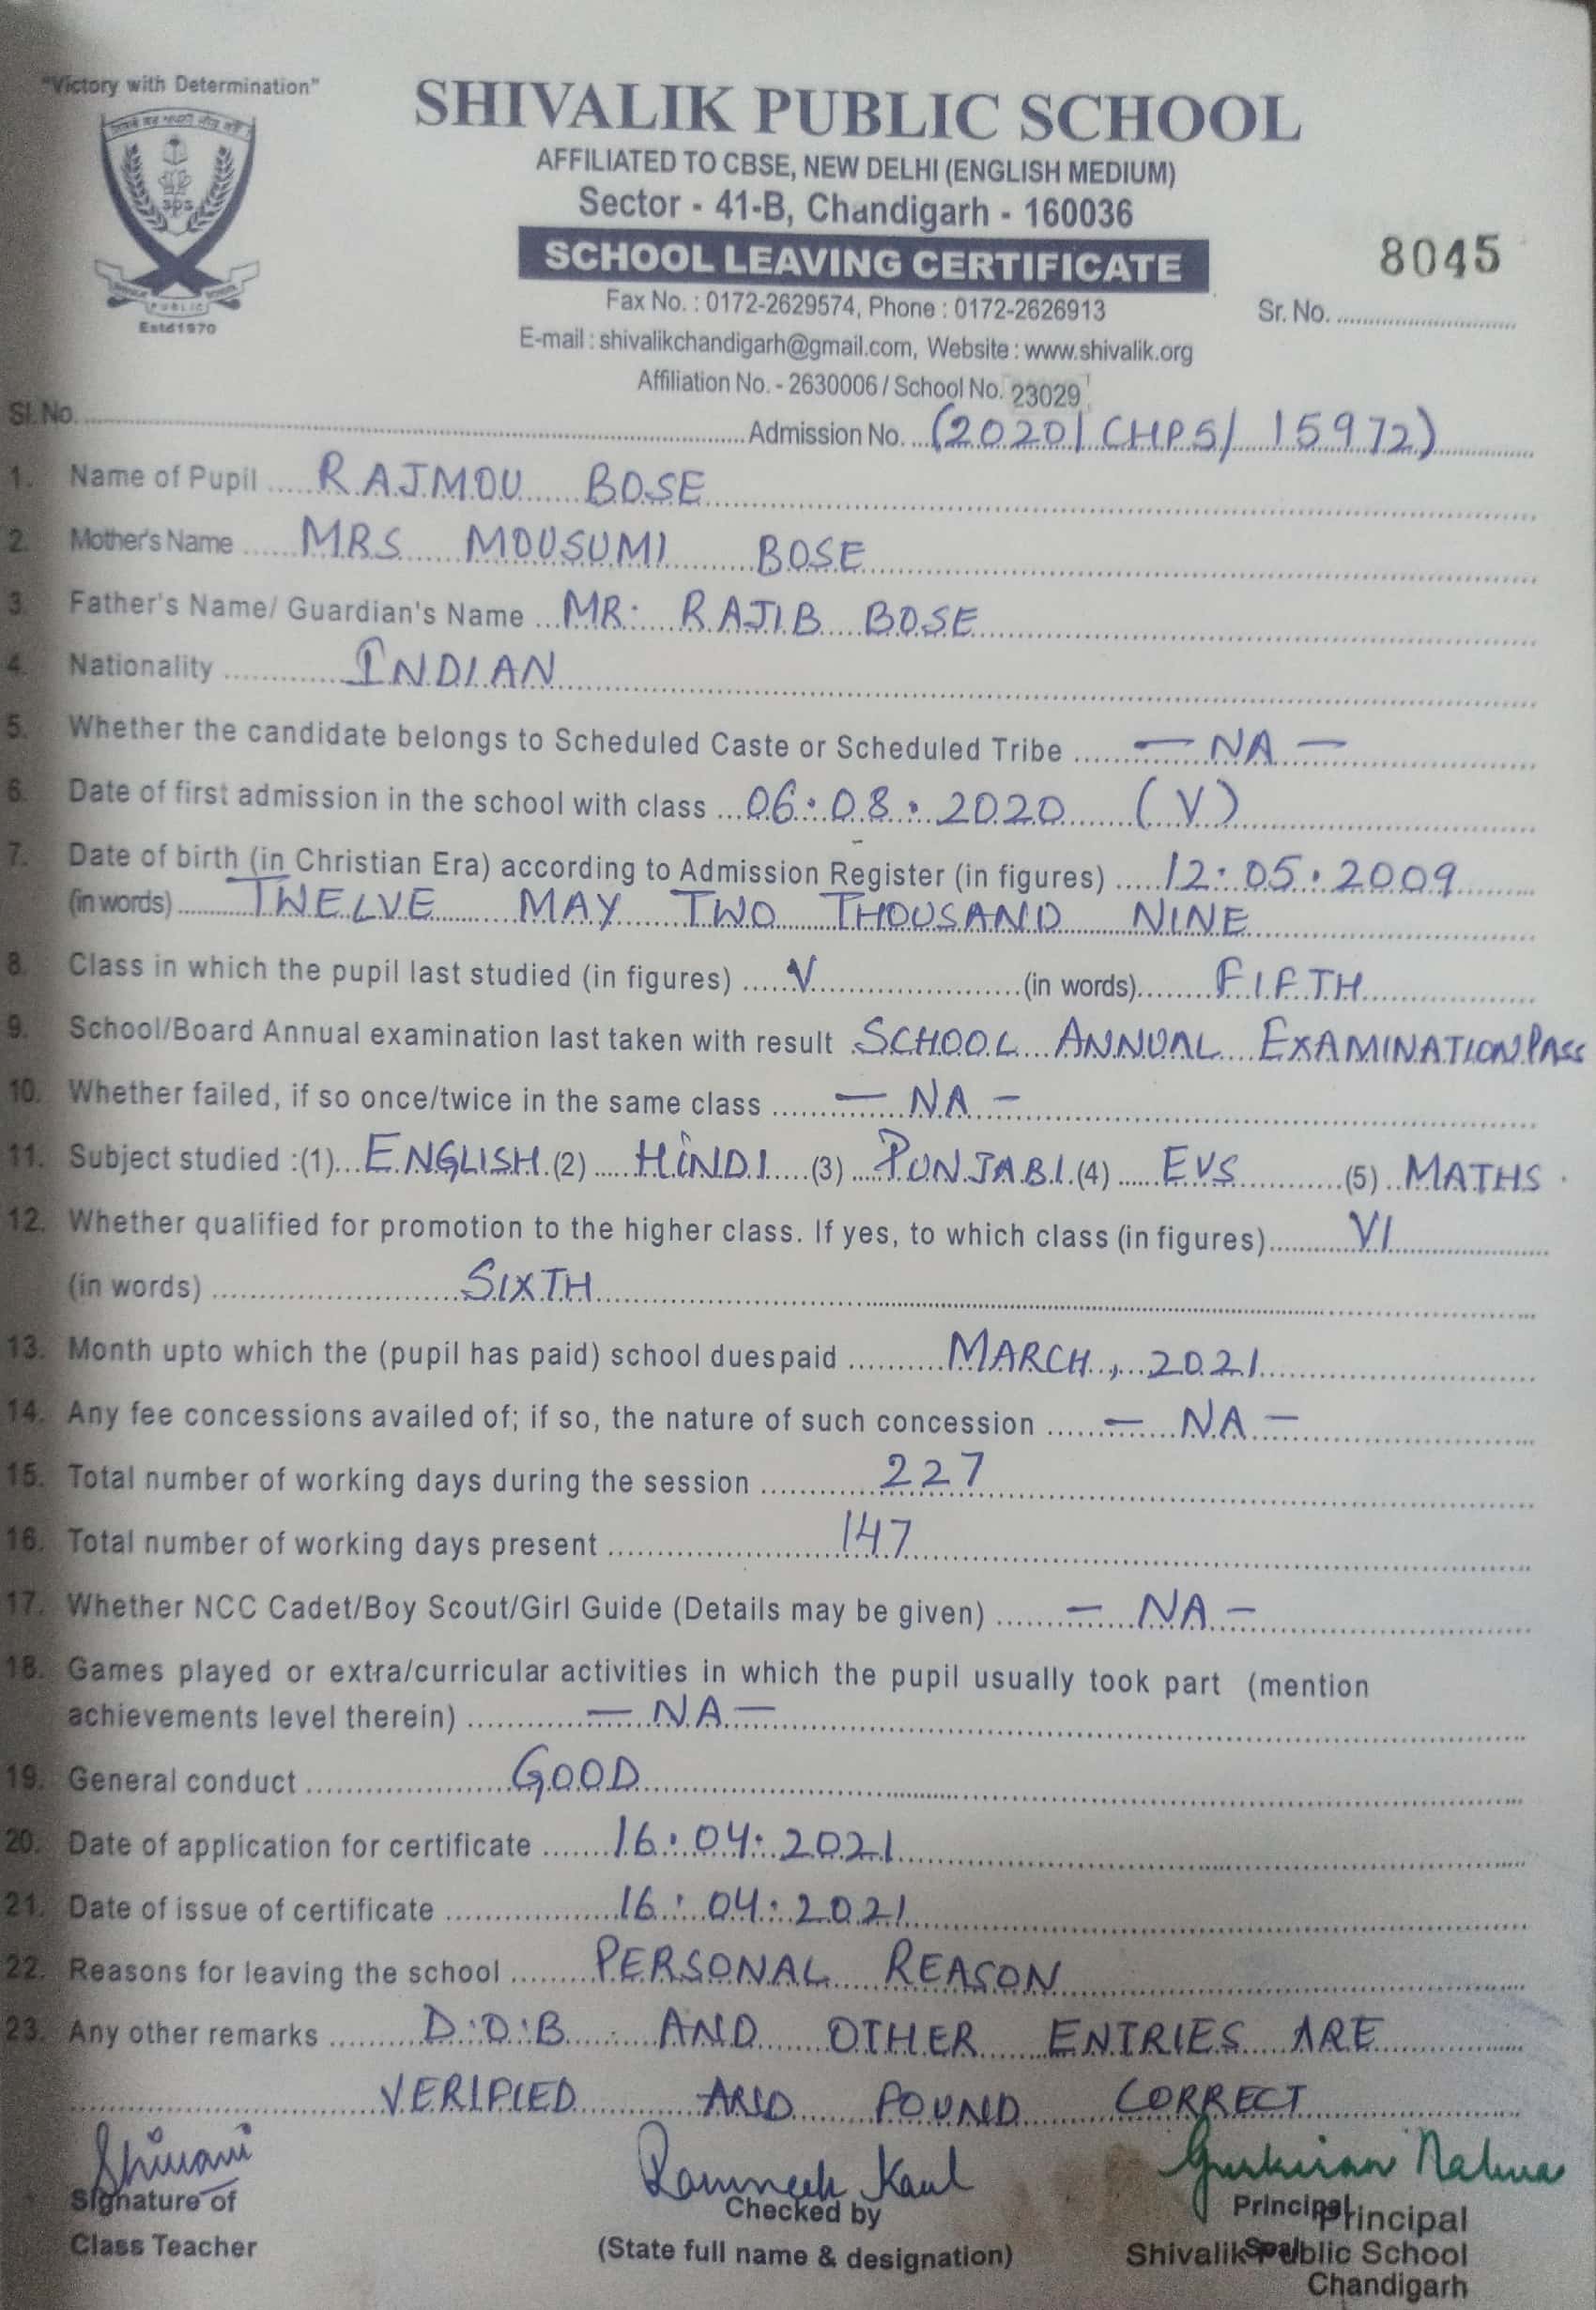 "Victory with Determination"
SHIVALIK PUBLIC SCHOOL
AFFILIATED TO CBSE, NEW DELHI (ENGLISH MEDIUM)
Sector - 41-B, Chandigarh - 160036
SCHOOL LEAVING CERTIFICATE
8045
sps
PUBLIC
Estd1970
Fax No. : 0172-2629574, Phone : 0172-2626913
Sr. No. ..............................
E-mail : shivalikchandigarh@gmail.com, Website : www.shivalik.org
Affiliation No. - 2630006 / School No. 23029
Sl. No. .............................. Admission No. ...(2020/CHPS/15972)
1. Name of Pupil ..... RAJMOU BOSE
2. Mother's Name ..... MRS MOUSUMI BOSE
3. Father's Name/ Guardian's Name ... MR. RAJIB BOSE
4. Nationality ............ INDIAN
5. Whether the candidate belongs to Scheduled Caste or Scheduled Tribe ..... — NA —
6. Date of first admission in the school with class ... 06.08.2020 (V)
7. Date of birth (in Christian Era) according to Admission Register (in figures) ..... 12.05.2009
(in words) ..... TWELVE MAY TWO THOUSAND NINE
8. Class in which the pupil last studied (in figures) ..... V ..... (in words) ..... FIFTH
9. School/Board Annual examination last taken with result SCHOOL ANNUAL EXAMINATION PASS
10. Whether failed, if so once/twice in the same class ..... — NA —
11. Subject studied :(1)... ENGLISH (2) ..... HINDI ..... (3) ..... PUNJABI (4) ..... EVS ..... (5) .. MATHS.
12. Whether qualified for promotion to the higher class. If yes, to which class (in figures) ..... VI
(in words) ..... SIXTH
13. Month upto which the (pupil has paid) school duespaid ..... MARCH, 2021
14. Any fee concessions availed of; if so, the nature of such concession ..... — NA —
15. Total number of working days during the session ..... 227
16. Total number of working days present ..... 147
17. Whether NCC Cadet/Boy Scout/Girl Guide (Details may be given) ..... — NA —
18. Games played or extra/curricular activities in which the pupil usually took part (mention
achievements level therein) ..... — NA —
19. General conduct ..... GOOD
20. Date of application for certificate ..... 16.04.2021
21. Date of issue of certificate ..... 16.04.2021
22. Reasons for leaving the school ..... PERSONAL REASON
23. Any other remarks ..... D.O.B. AND OTHER ENTRIES ARE
VERIFIED AND FOUND CORRECT
Shivani
Ramneek Kaul
Gurkiran Nalwa
Signature of
Class Teacher
Checked by
(State full name & designation)
Principal
Seal
Principal
Shivalik Public School
Chandigarh